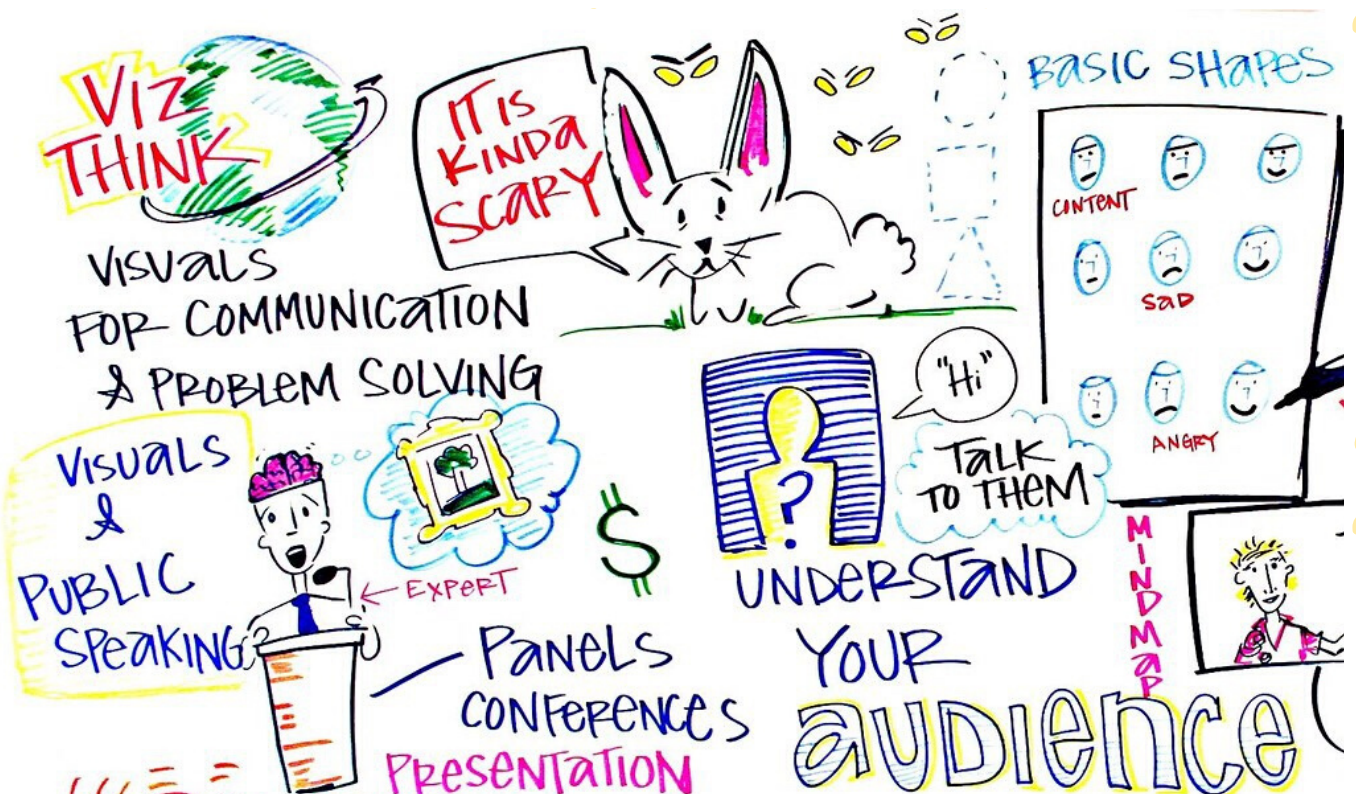 VIZ
THINK
VISUALS
FOR COMMUNICATION
& PROBLEM SOLVING
IT IS
KINDA
SCARY
BASIC SHAPES
CONTENT
SAD
ANGRY
VISUALS
&
PUBLIC
SPEAKING
← EXPERT
$
PANELS
CONFERENCES
PRESENTATION
?
"Hi"
TALK
TO THEM
UNDERSTAND
YOUR
AUDIENCE
MINDMAP